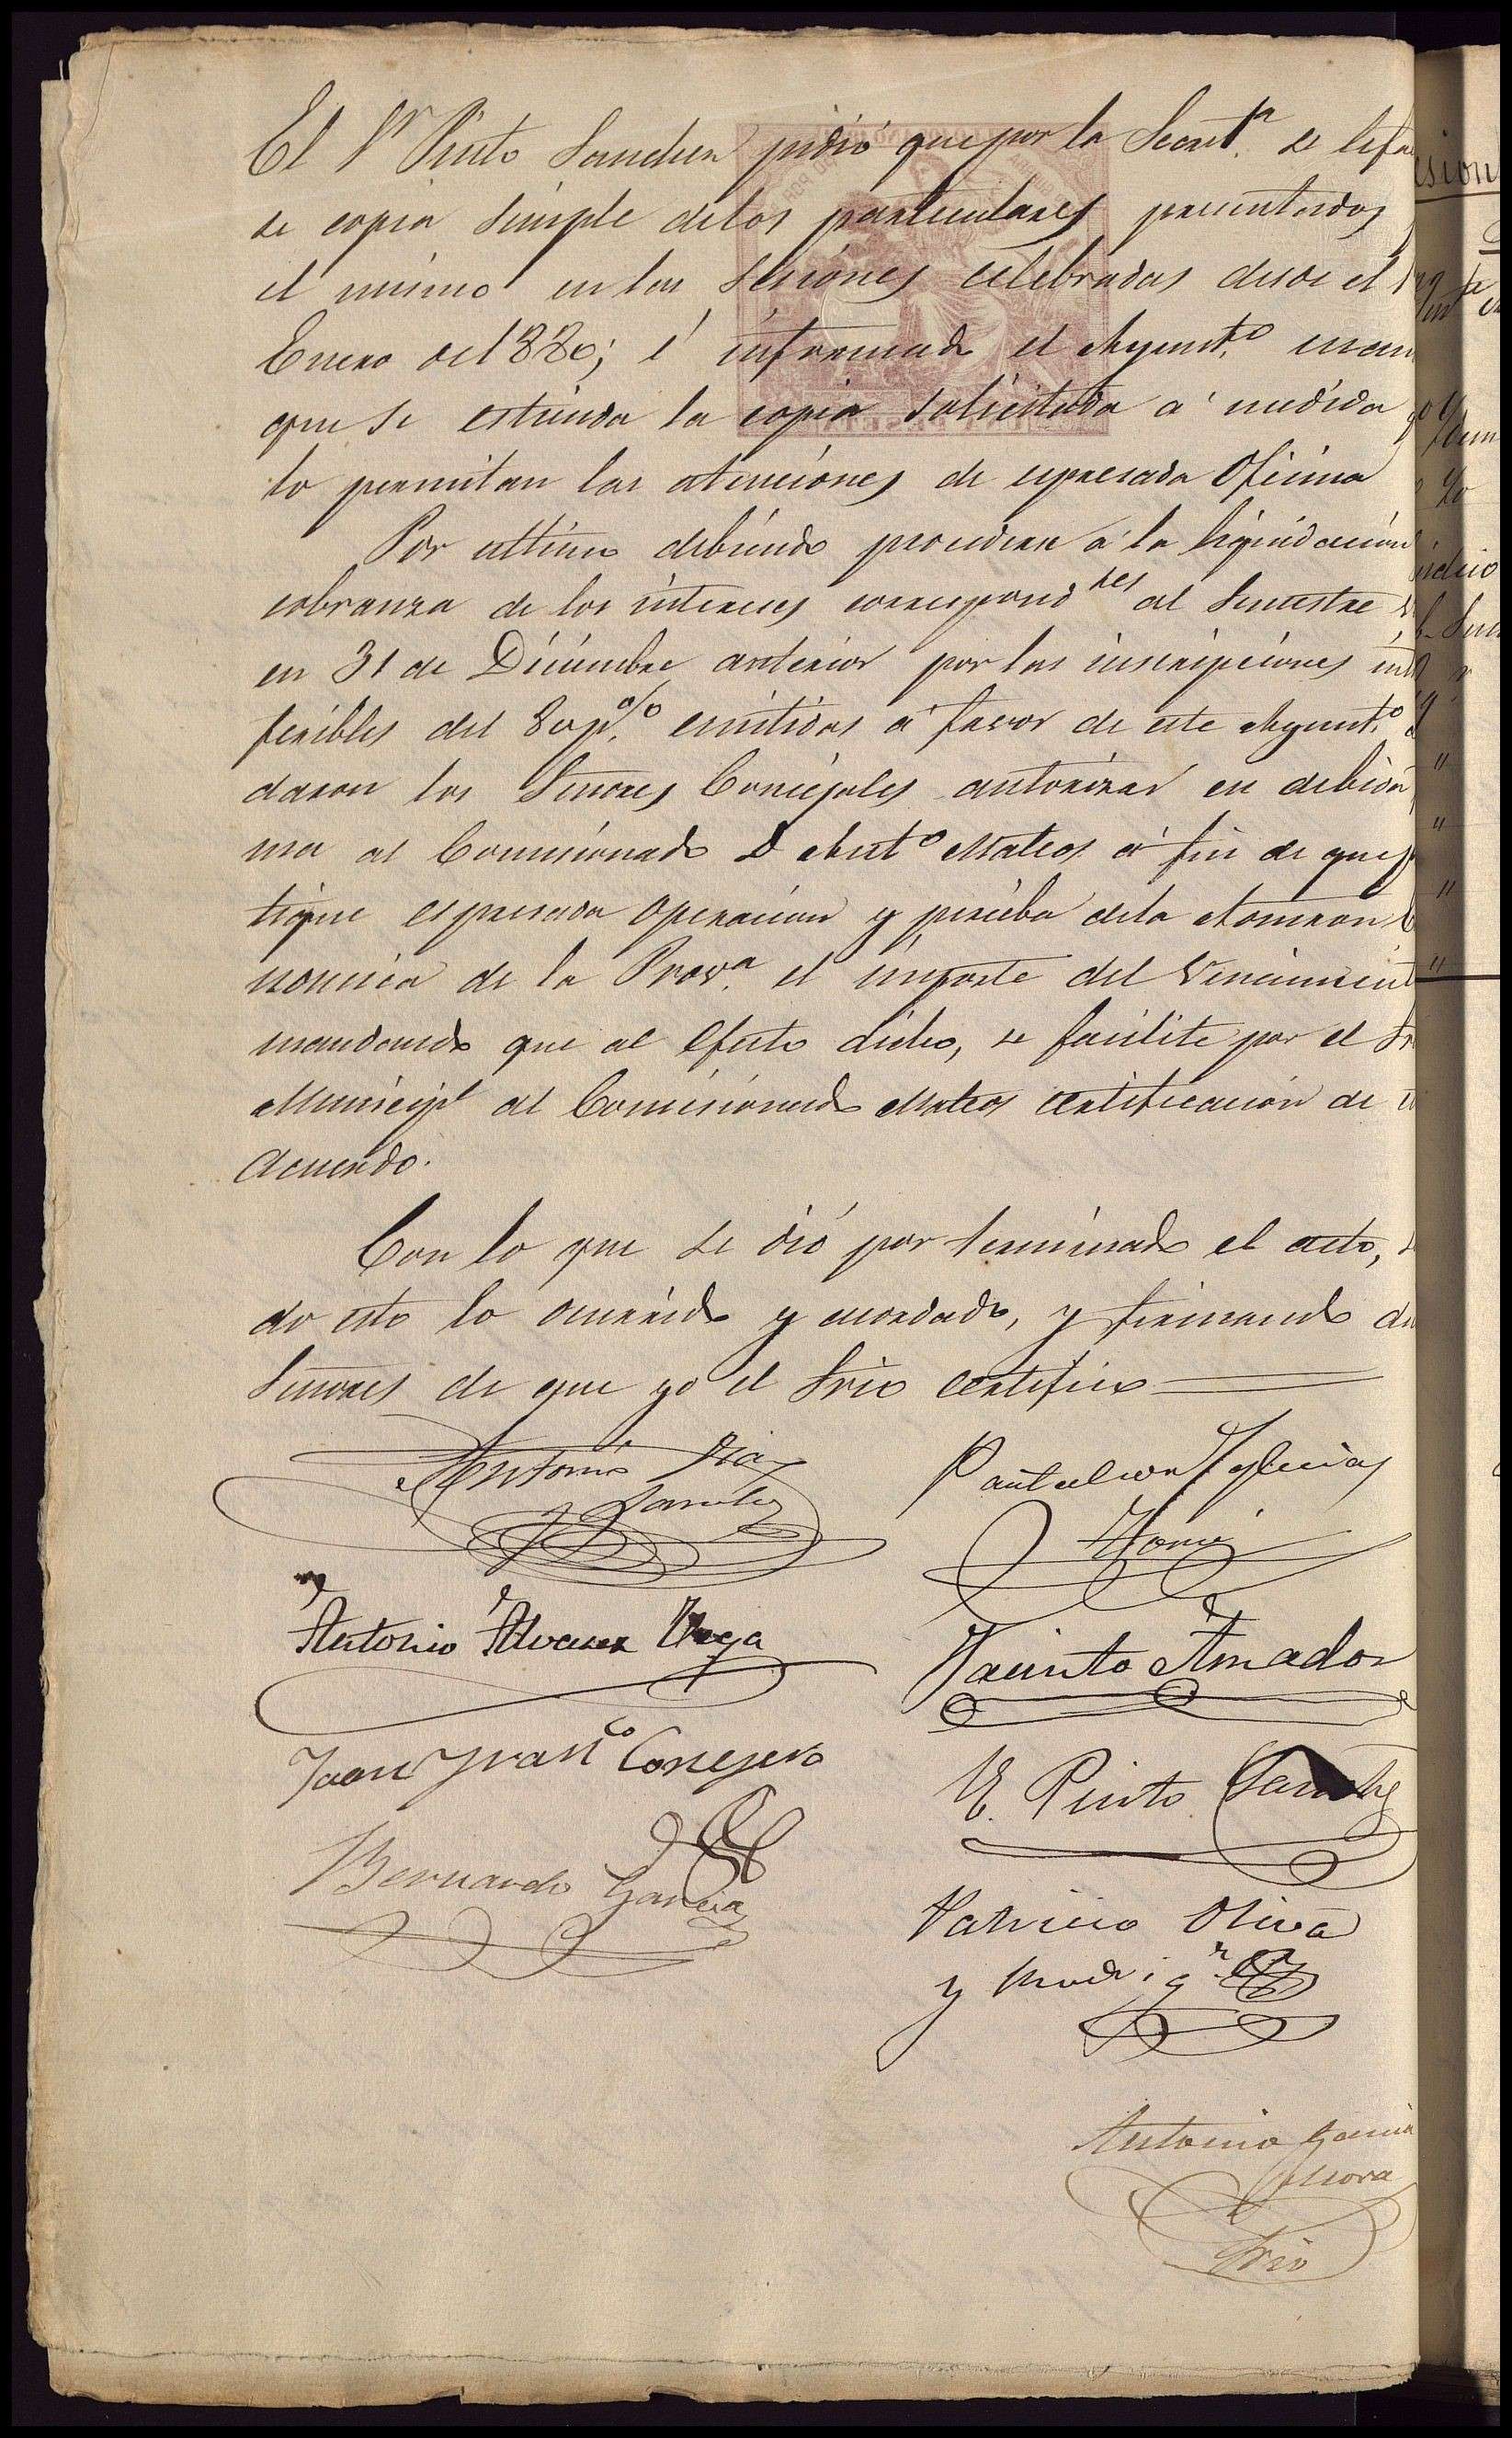 El Sr Pinto Sanchez pidió que por la Secret.ª se le fa
se copia simple de los particulares presentados
el mismo en las Sesiones celebradas desde el 1
Enero de 1880; é informado el Ayunt.º
que se estienda la copia solicitada á medida
lo permitan las atenciones de espresada Oficina
Por ultimo debiendo proceder á la liquidacion
cobranza de los intereses correspond tes al Semestre
en 31 de Diciembre anterior por las inscripciones
feribles del 80 p.% emitidas á favor de este Ayunt.º
daron los Señores Concejales autorizar en debida
ma al Comisionado D Ant.º Mateos á fin de que
tique espresada operacion y perciba de la Admon
nomica de la Prov.ª el importe del Vencimient
mandando que al efecto dicho, se facilite por el
Municipl al Comisionado Mateos certificacion de
acuerdo.
Con lo que se dió por terminado el acto,
do esto lo ocurrido y acordado, y firmando
Señores de que yo el Srio certifico
Antonio Diaz
Sanchez
Pantaleon Yglesias
Antonio Alvarez Vega
Jacinto Amador
Juan Franco Conejero
E. Pinto Sanchez
Bernardo Garcia
Patricio Oliva
y Rodrigz
Antonio Garcia
Mora
Srio